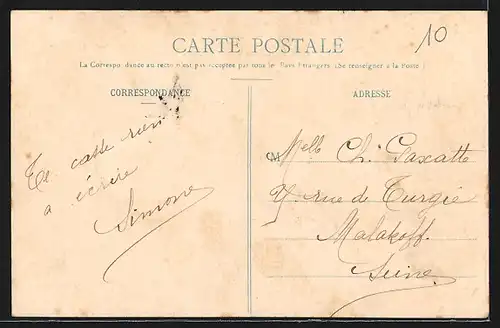 10
CARTE POSTALE
La Correspondance au recto n'est pas acceptée par tous les Pays Étrangers (Se renseigner à la Poste)
CORRESPONDANCE
ADRESSE
Te casse rien
a écrire
Simone
CM
Melle Ch. Gascatte
7 rue de Turgie
Malakoff
Seine